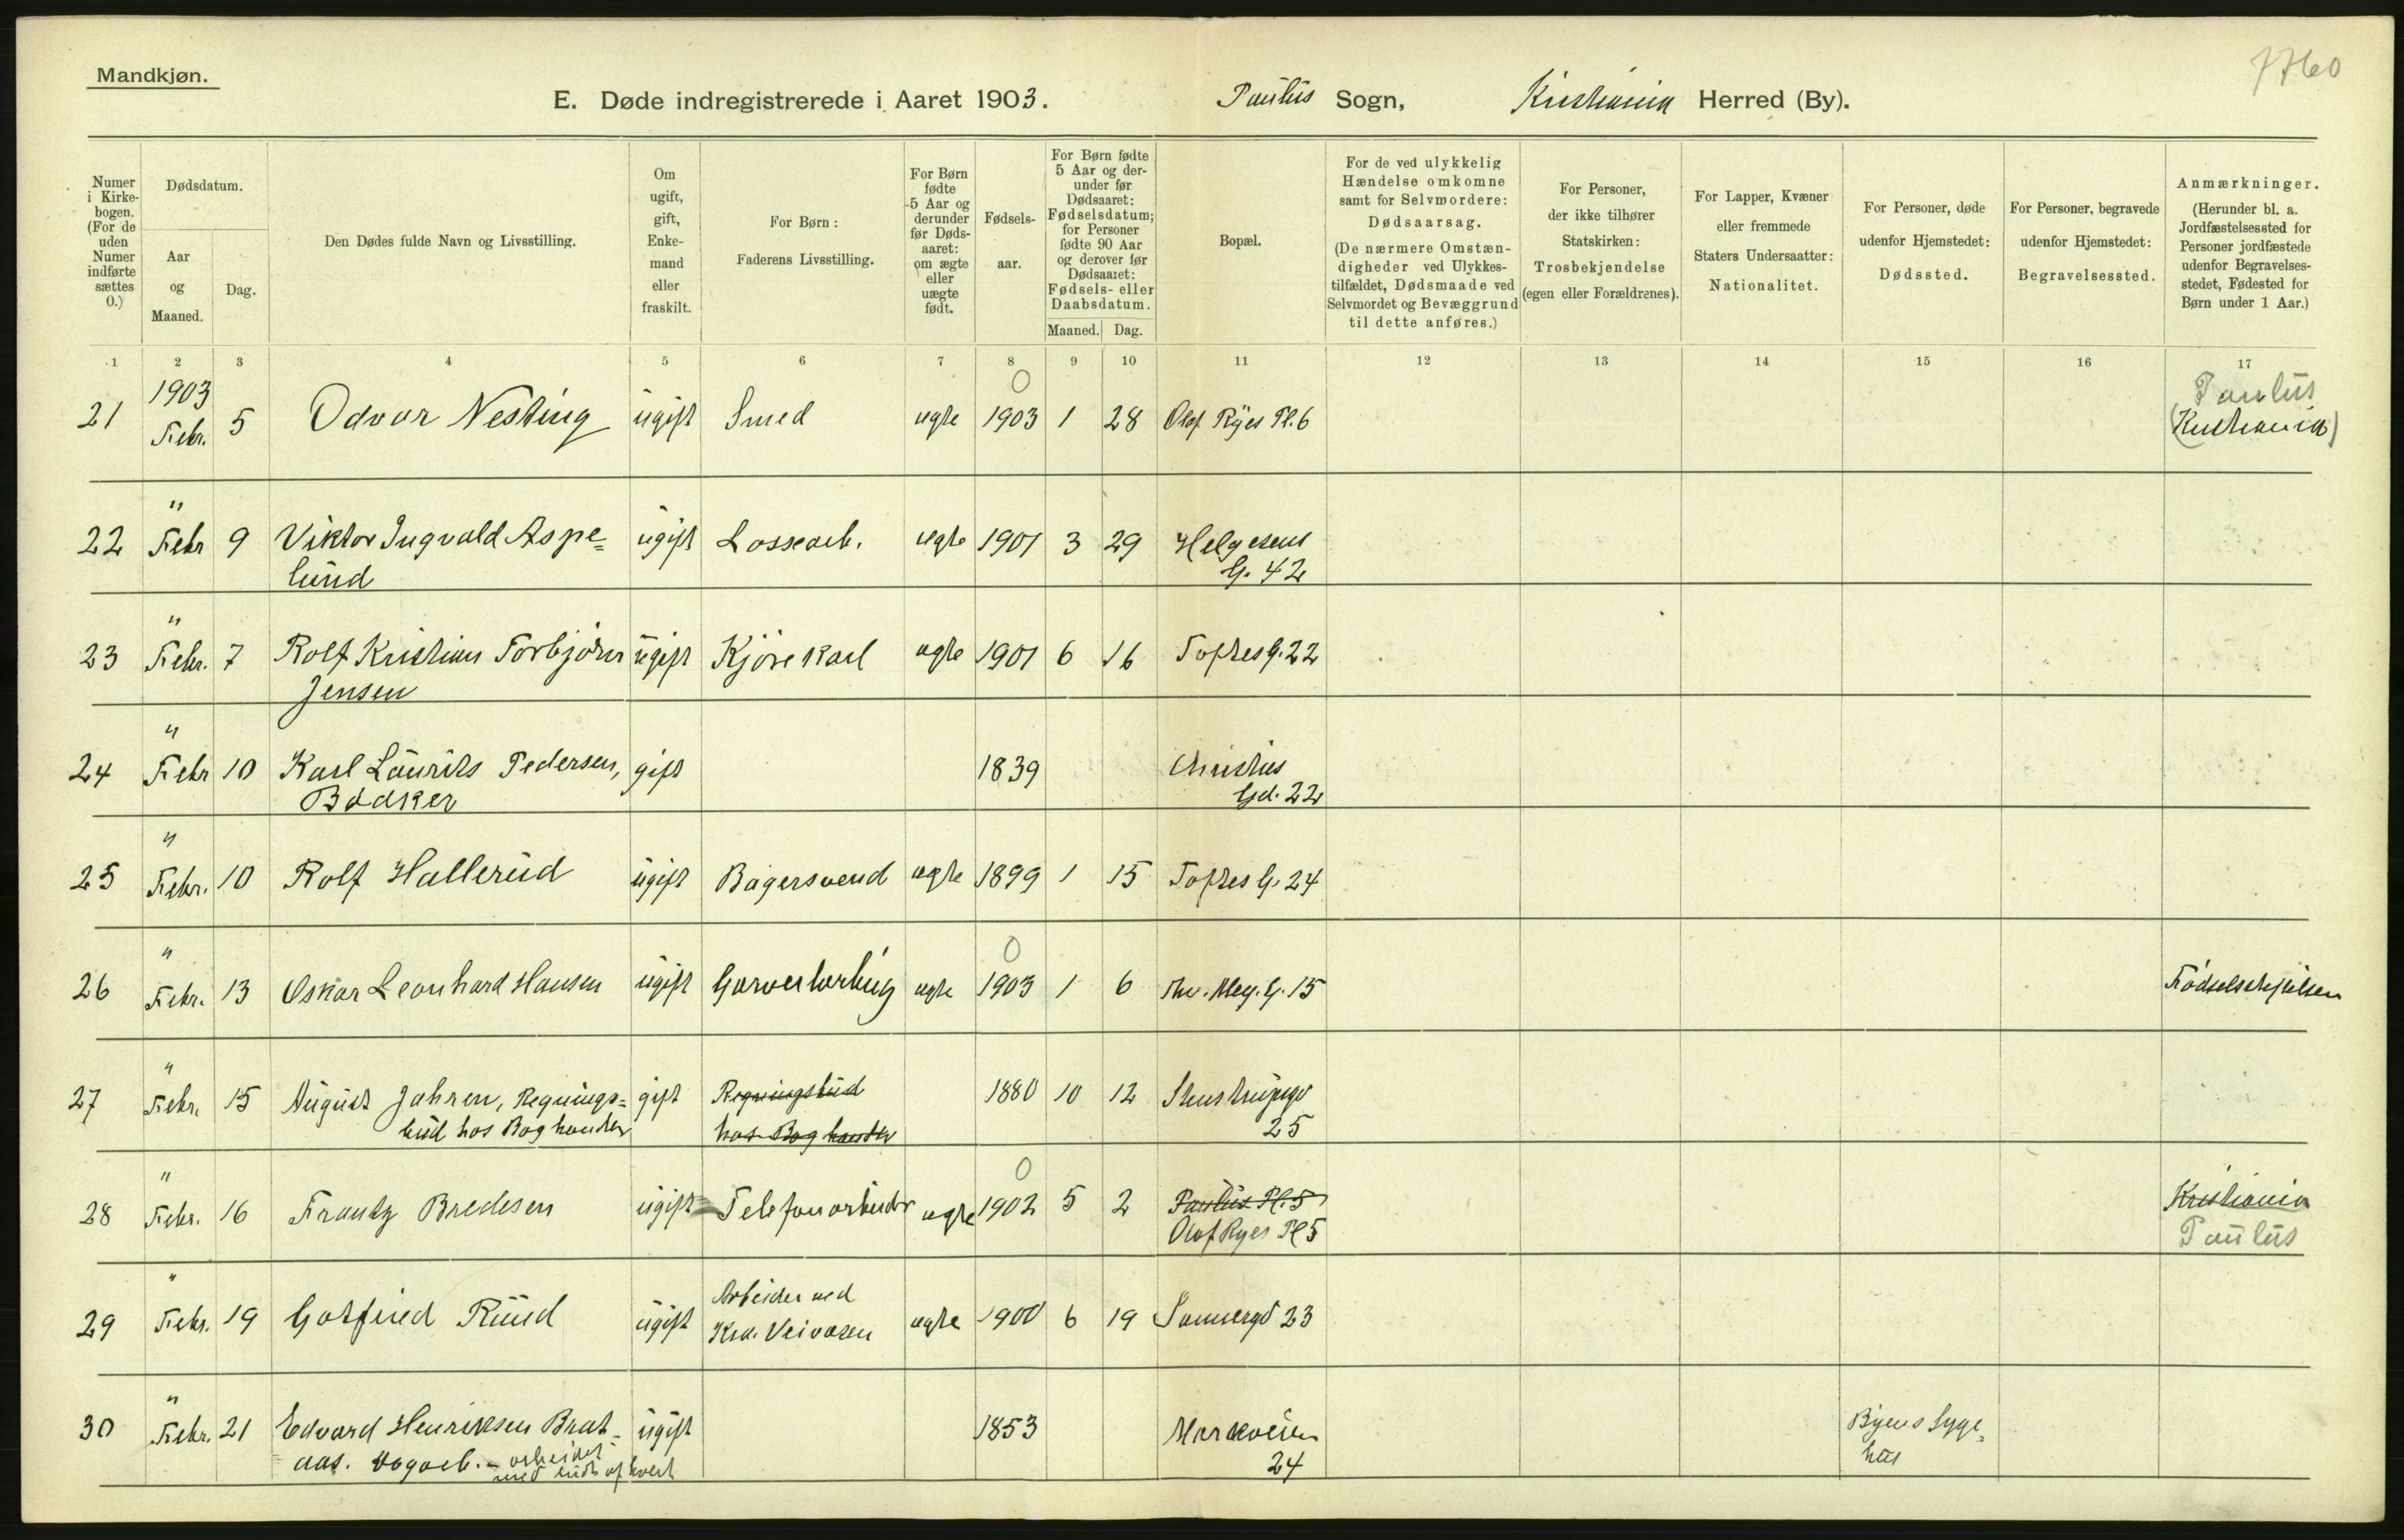 Mandkjøn.
7760
E. Døde indregistrerede i Aaret 1903.
Paulus Sogn,
Kristiania Herred (By).
Numer i Kirkebogen. (For de uden Numer indførte sættes 0.)
Dødsdatum.
Aar og Maaned.
Dag.
Den Dødes fulde Navn og Livsstilling.
Om ugift, gift, Enkemand eller fraskilt.
For Børn: Faderens Livsstilling.
For Børn fødte 5 Aar og derunder før Dødsaaret: om ægte eller uægte født.
Fødselsaar.
For Børn fødte 5 Aar og derunder før Dødsaaret: Fødselsdatum; for Personer fødte 90 Aar og derover før Dødsaaret: Fødsels- eller Daabsdatum.
Maaned. Dag.
Bopæl.
For de ved ulykkelig Hændelse omkomne samt for Selvmordere: Dødsaarsag. (De nærmere Omstændigheder ved Ulykkestilfældet, Dødsmaade ved Selvmordet og Bevæggrund til dette anføres.)
For Personer, der ikke tilhører Statskirken: Trosbekjendelse (egen eller Forældrenes).
For Lapper, Kvæner eller fremmede Staters Undersaatter: Nationalitet.
For Personer, døde udenfor Hjemstedet: Dødssted.
For Personer, begravede udenfor Hjemstedet: Begravelsessted.
Anmærkninger. (Herunder bl. a. Jordfæstelsessted for Personer jordfæstede udenfor Begravelsesstedet, Fødested for Børn under 1 Aar.)
1 2 3 4 5 6 7 8 9 10 11 12 13 14 15 16 17
1903 0 Paulus
21 Febr. 5 Odvar Nesting ugift Smed ægte 1903 1 28 Olaf Ryes Pl. 6 (Kristiania)
"
22 Febr 9 Viktor Ingvald Aspe= ugift Lossearb. ægte 1901 3 29 Helgesens
lund G. 42
"
23 Febr. 7 Rolf Kristian Torbjörn ugift Kjörekarl ægte 1901 6 16 Toftes G. 22
Jensen
"
24 Febr 10 Karl Laurits Pedersen, gift 1839 Christies
Bödker Gd. 22
"
25 Febr. 10 Rolf Hallerud ugift Bagersvend ægte 1899 1 15 Toftes G. 24
" 0
26 Febr. 13 Oskar Leonhard Hansen ugift Garverlærling ægte 1903 1 6 Thv. Mey. G. 15 Födselsstiftelsen
"
27 Febr. 15 August Jahren, Regnings= gift Regningsbud 1880 10 12 Stenstrupgd
bud hos Boghandler hos Boghandler 25
" 0
28 Febr. 16 Frantz Bredesen ugift Telefonarbeider ægte 1902 5 2 Paulus Pl. 5 Kristiania
Olaf Ryes Pl 5 Paulus
" Arbeider ved
29 Febr. 19 Gotfried Ruud ugift Kra. Veivæsen ægte 1900 6 19 Sannergd 23
"
30 Febr. 21 Edvard Henriksen Brat- ugift 1853 Markveien Byens Syge=
aas. - arbeidet 24 hus
med lidt af hvert